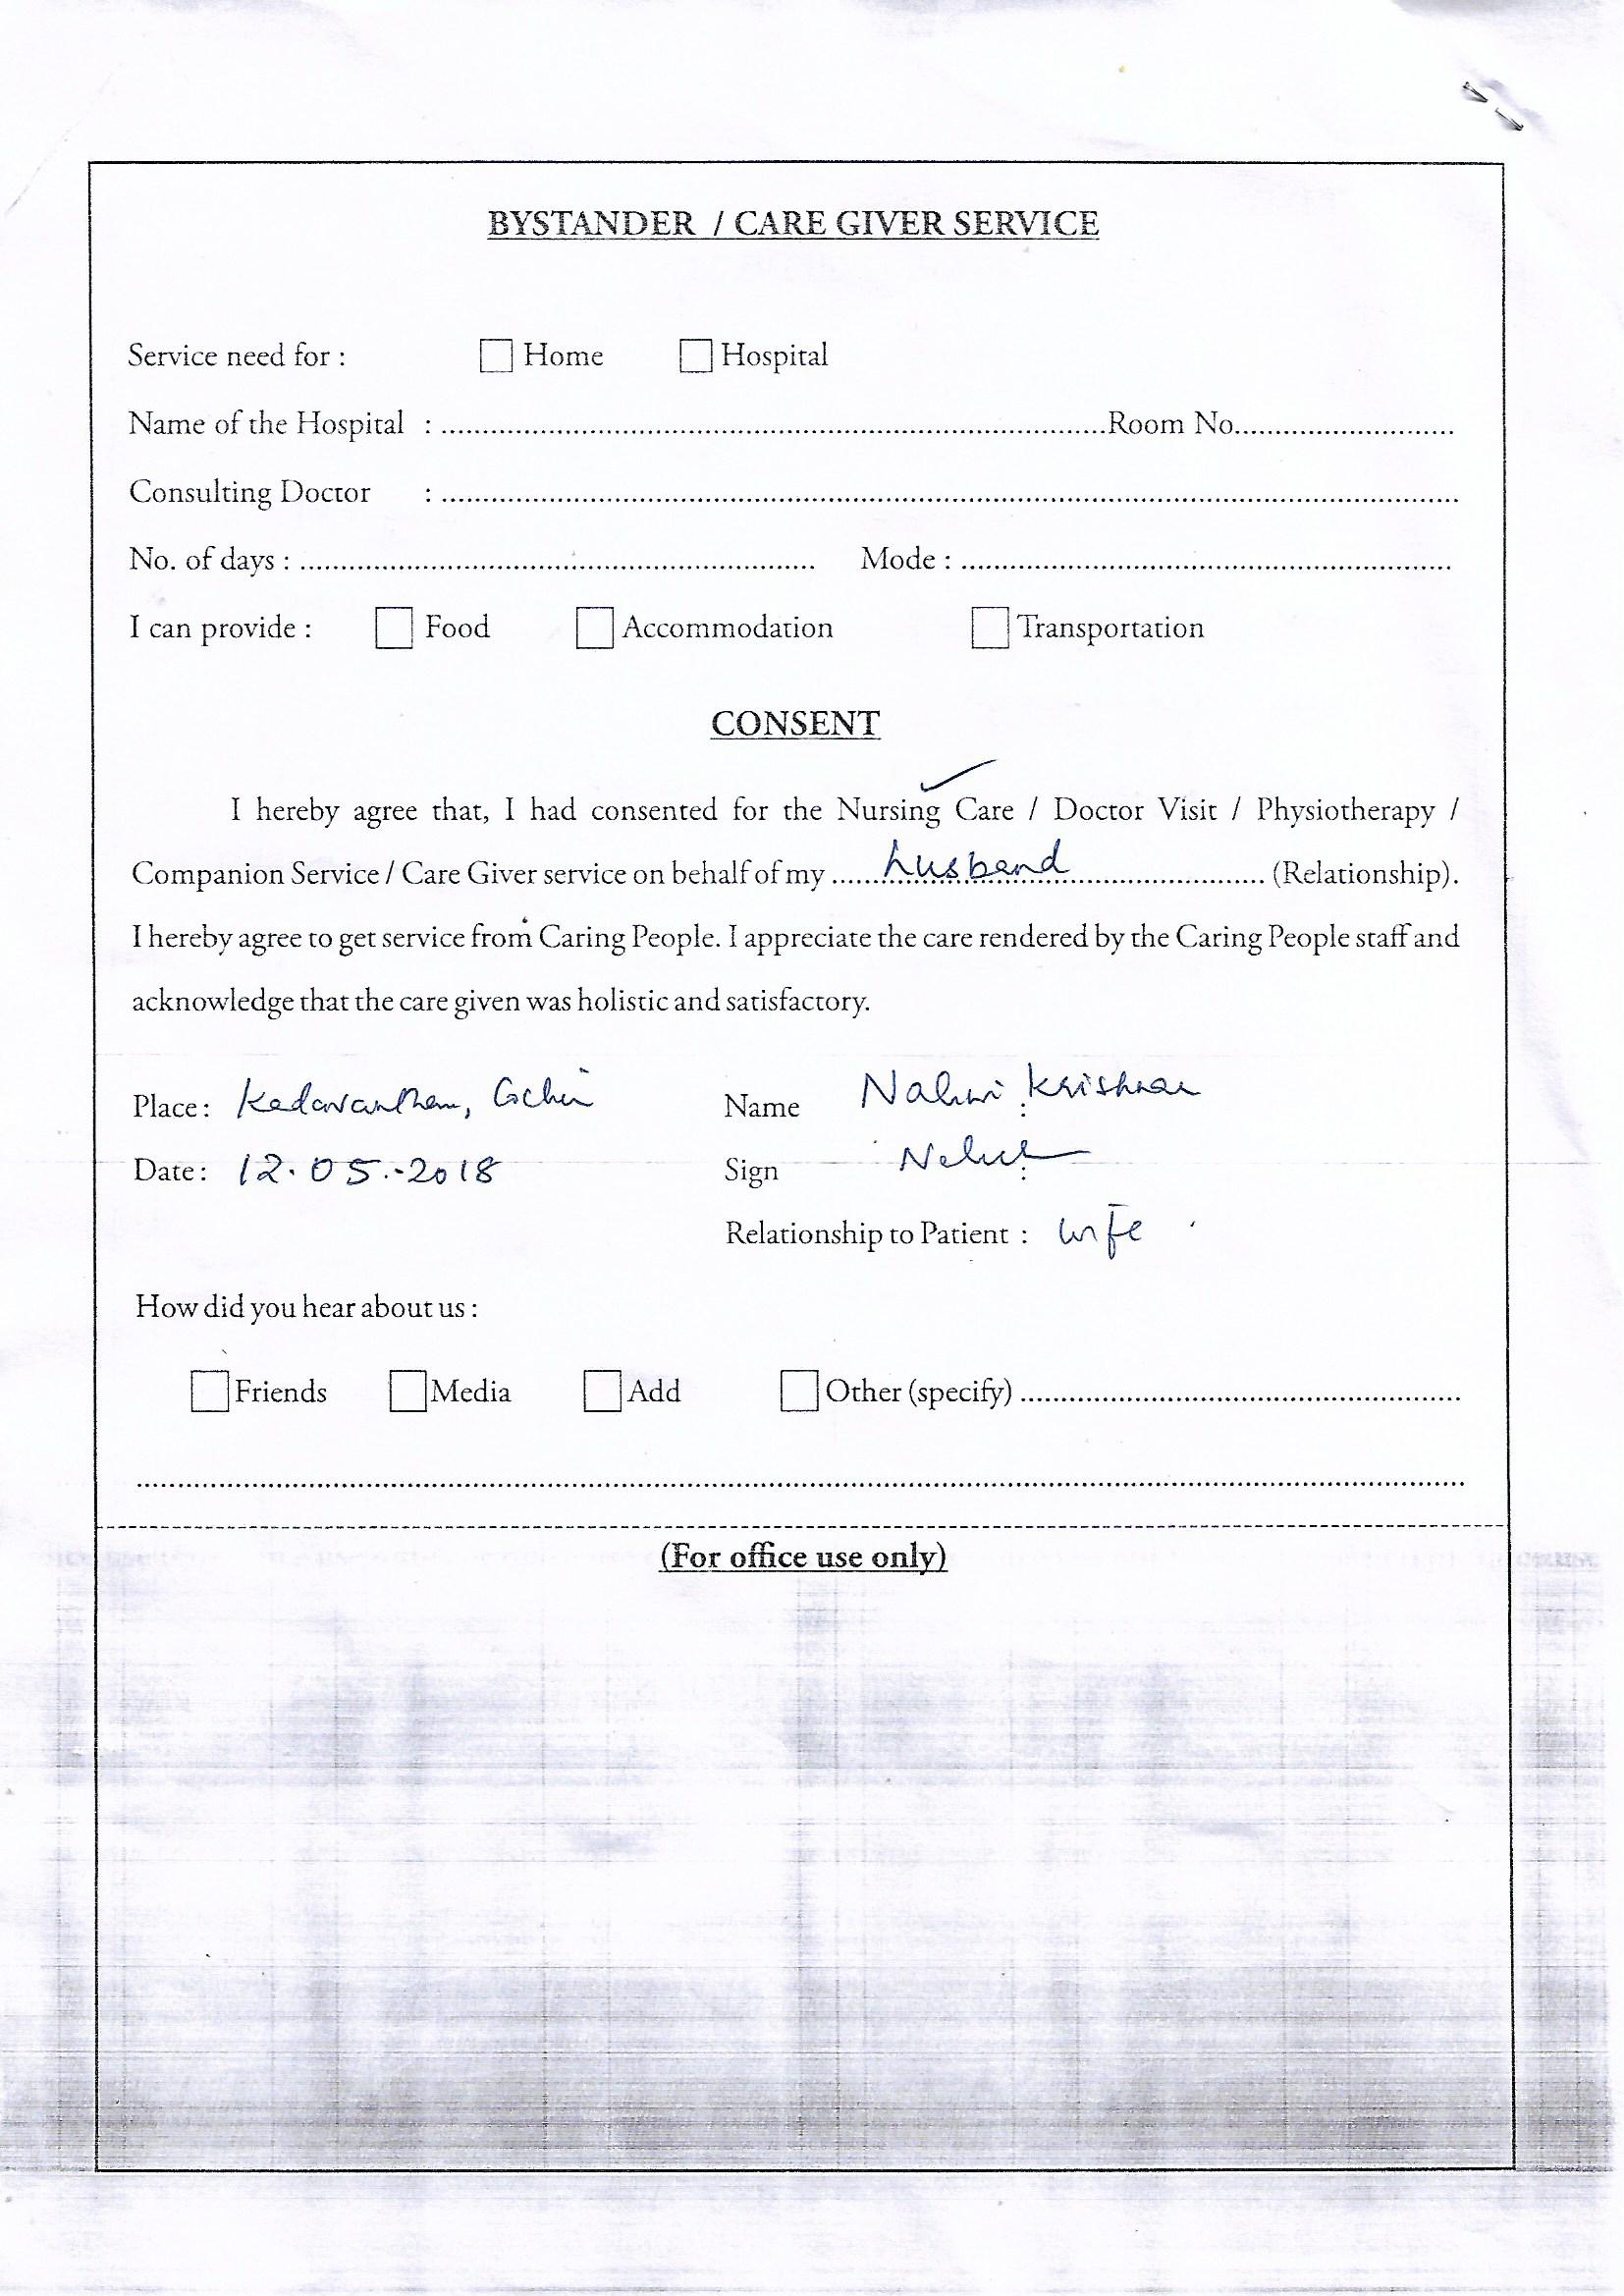 BYSTANDER / CARE GIVER SERVICE
Service need for : Home Hospital
Name of the Hospital : ........ Room No........
Consulting Doctor : ........
No. of days : ........ Mode : ........
I can provide : Food Accommodation Transportation
CONSENT
I hereby agree that, I had consented for the Nursing Care / Doctor Visit / Physiotherapy /
Companion Service / Care Giver service on behalf of my ...... husband ...... (Relationship).
I hereby agree to get service from Caring People. I appreciate the care rendered by the Caring People staff and
acknowledge that the care given was holistic and satisfactory.
Place : Cochin Name : Krishnan
Date : 12.05.-2018 Sign :
Relationship to Patient : wife
How did you hear about us :
Friends Media Add Other (specify) ........
(For office use only)